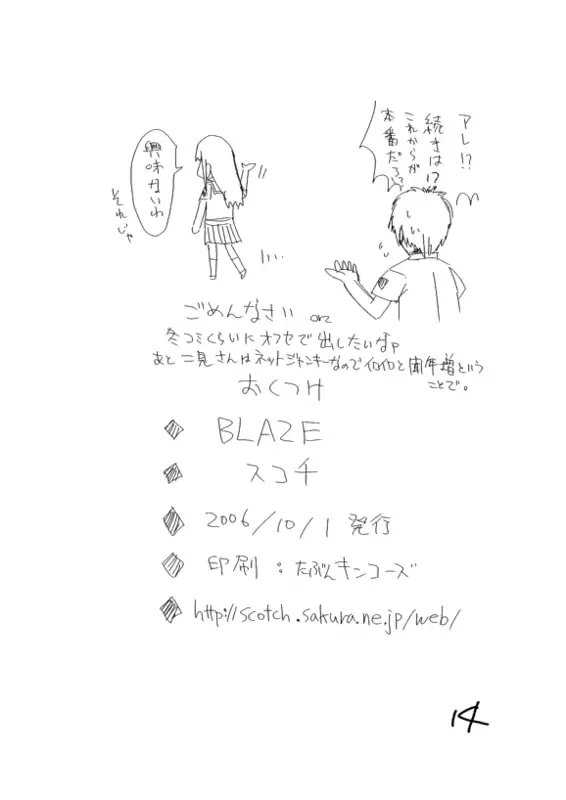 アレ!?
続きは!?
これからが
本番だろ!?
興味ないわ
それじゃ
ごめんなさい orz
冬コミくらいにオフセで出したいなァ
あと二見さんはネットジャンキーなのでイロイロと

ということで。
おくつけ
BLAZE
スコチ
2006/10/1 発行
印刷：たぶんキンコーズ
http://scotch.sakura.ne.jp/web/
14